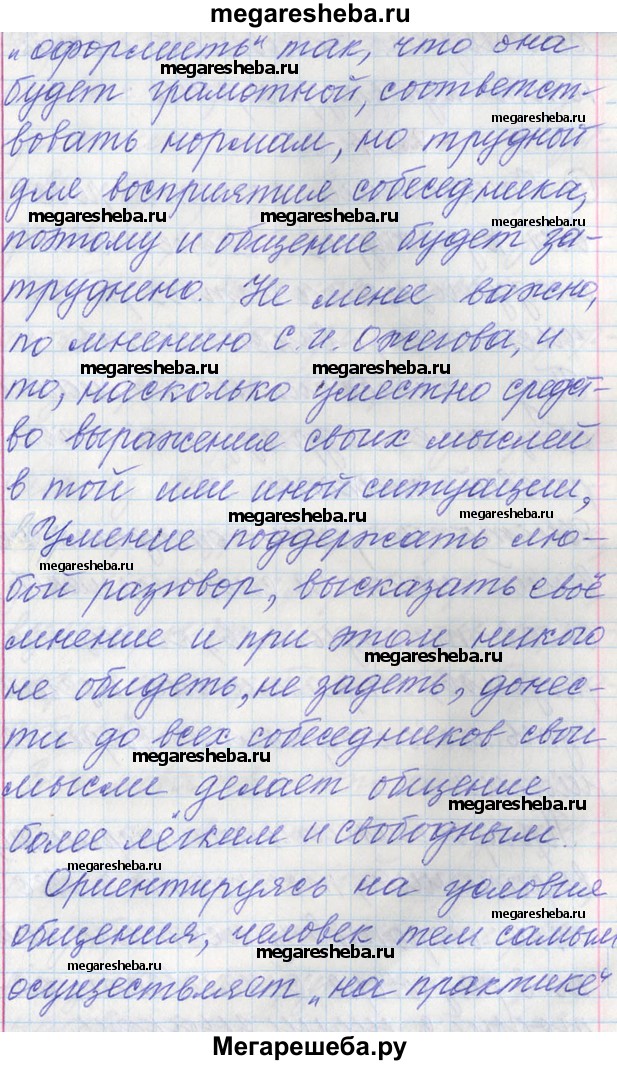 megaresheba.ru
„оформить“ так, что она
megaresheba.ru
будет грамотной, соответст-
megaresheba.ru
вовать нормам, но трудной
для восприятия собеседника,
megaresheba.ru megaresheba.ru megaresheba.ru
поэтому и общение будет за-
труднено. Не менее важно,
по мнению С. И. Ожегова, и
megaresheba.ru megaresheba.ru
то, насколько уместно средст-
во выражения своих мыслей
в той или иной ситуации,
megaresheba.ru
Умение поддержать лю-
megaresheba.ru
бой разговор, высказать своё
мнение и при этом никого
megaresheba.ru
не обидеть, не задеть, донес-
ти до всех собеседников свои
megaresheba.ru
мысли делает общение
megaresheba.ru
более лёгким и свободным.
megaresheba.ru
Ориентируясь на условия
megaresheba.ru
общения, человек тем самым
megaresheba.ru
megaresheba.ru
осуществляет „на практике“
Мегарешеба.ру